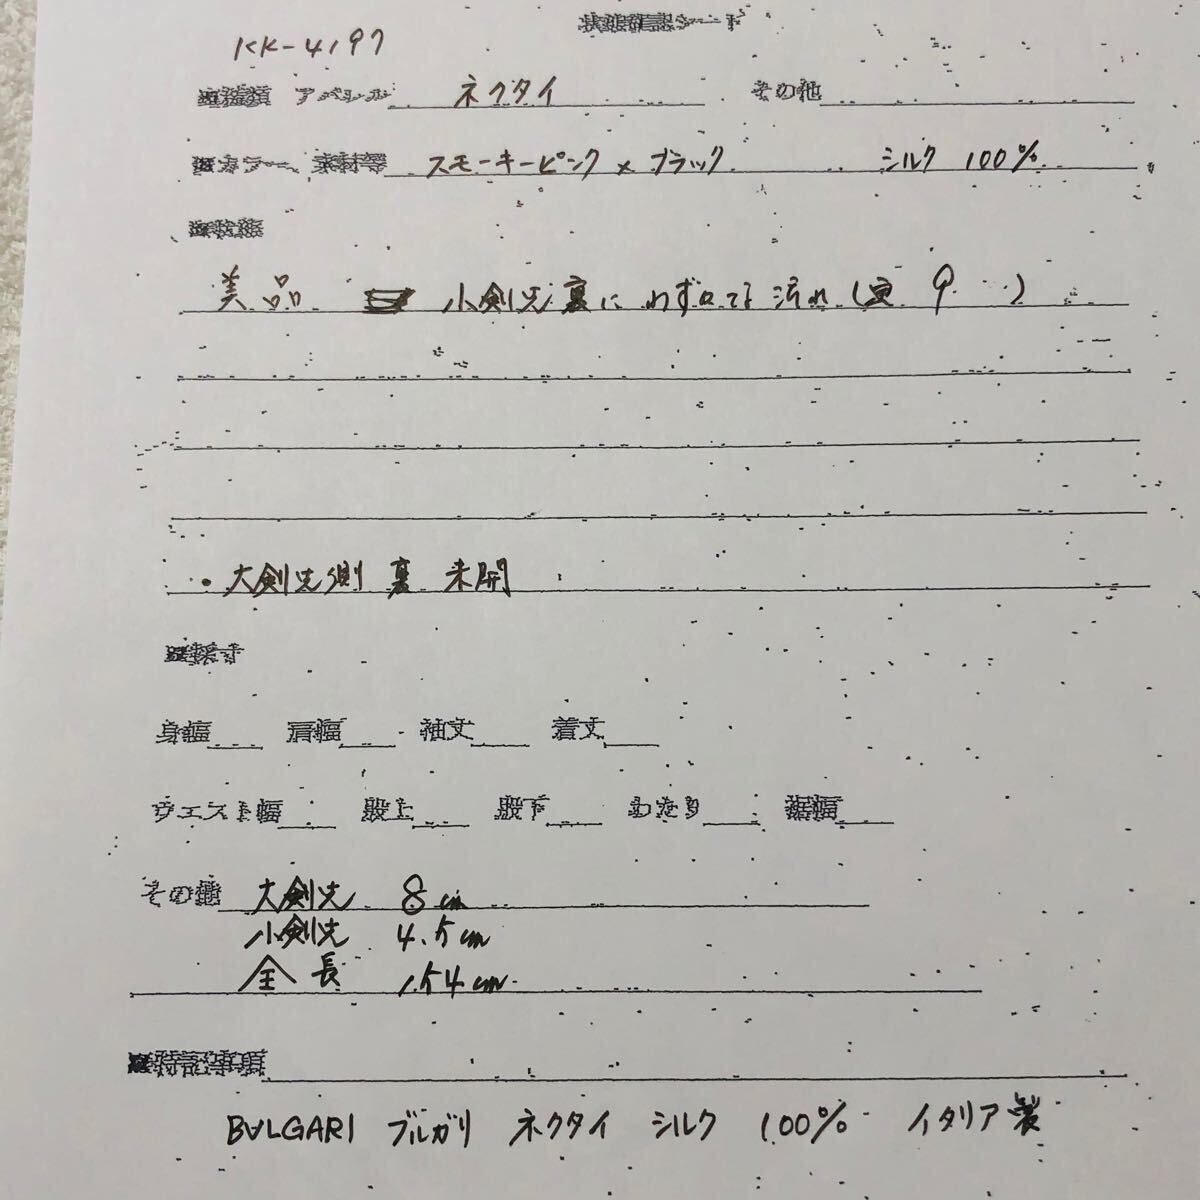 状態確認シート
KK-4197
■種類 アパレル ネクタイ その他
■カラー、素材等 スモーキーピンク×ブラック シルク 100%
■状態
美品 小剣先裏にわずかな汚れ(写 9 )
・大剣先側 裏 未開
■採寸
身幅 肩幅 袖丈 着丈
ウエスト幅 股上 股下 わたり 裾幅
その他 大剣先 8cm
小剣先 4.5cm
全長 154cm
■特記事項
BVLGARI ブルガリ ネクタイ シルク 100% イタリア製